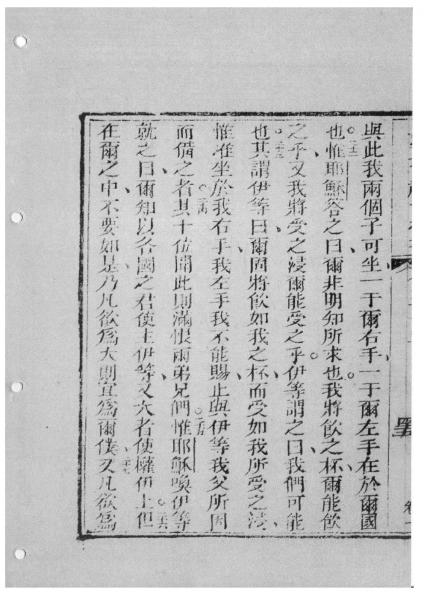 與此我兩個子可坐一于爾右手一于爾左手在於爾國
也○二十二惟耶穌答之曰爾非明知所求也○我將飲之杯爾能飲
之乎又我將受之浸爾能受之乎○伊等謂之曰我們可能
也○二十三其謂伊等曰爾固將飲如我之杯而受如我所受之浸
惟准坐於我右手我左手我不能賜止與伊等我父所因
而備之者○二十四其十位聞此則滿恨兩弟兄們○二十五惟耶穌喚伊等
就之曰爾知以各國之君使主伊等又大者使權伊上○二十六但
在爾之中不要如是乃凡欲為大則宜為爾僕○二十七又凡欲為